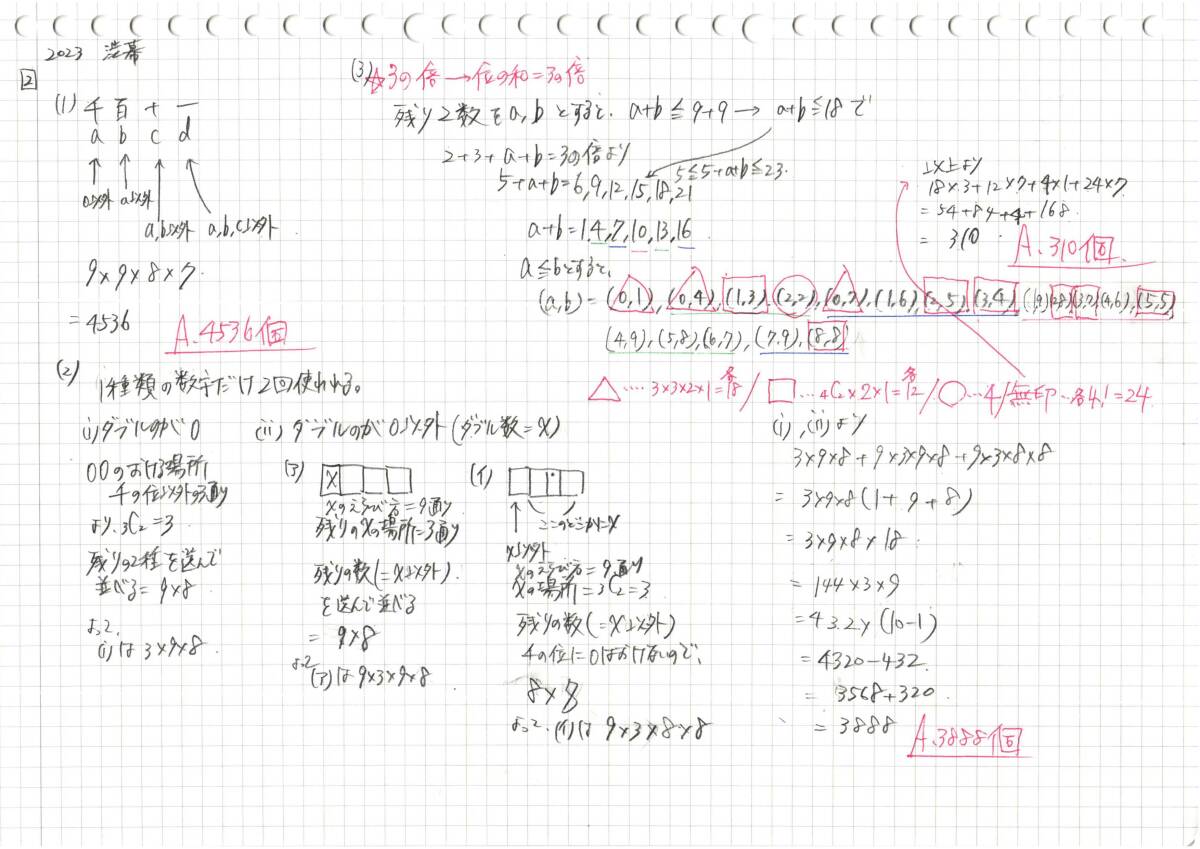 2023 渋幕
2
(1) 千 百 十 一
a b c d
0以外 a以外
a,b以外 a,b,c以外
9×9×8×7
=4536
A.4536個
(2)
1種類の数字だけ2回使われる。
(i)ダブルのが0
00のおける場所
千の位以外の3通り
より、3C2=3
残りの2種を選んで
並べる=9×8
よって、
(i)は3×9×8
(ii) ダブルのが0以外(ダブル数=X)
(ア)
X
Xのえらび方=9通り
残りのXの場所=3通り
残りの数(=X以外)
を選んで並べる
= 9×8
よって(ア)は9×3×9×8
(イ)
ここのどこかに=X
X以外
Xのえらび方=9通り
Xの場所=3C2=3
残りの数(=X以外)
千の位に0はおけないので、
8×8
よって、(イ)は 9×3×8×8
(i),(ii)より
3×9×8+9×3×9×8+9×3×8×8
=3×9×8(1+9+8)
=3×9×8×18
=144×3×9
=432×(10-1)
=4320-432
= 3568+320
=3888
A.3888個
(3)☆3の倍→位の和=3の倍
残り2数をa,bとすると、a+b≦9+9→a+b≦18で
2+3+a+b=3の倍より
5≦5+a+b≦23.
5+a+b=6,9,12,15,18,21
a+b=1,4,7,10,13,16
a≦bとすると、
(a,b)=(0,1),(0,4),(1,3),(2,2),(0,7),(1,6),(2,5),(3,4),(1,9)(2,8)(3,7)(4,6),(5,5)
(4,9),(5,8),(6,7),(7,9),(8,8)
△‥‥3×3×2×1=各18/□‥‥4C2×2×1=各12/○‥‥4/無印‥各4!=24
以上より
18×3+12×7+4×1+24×7
=54+84+4+168
=310
A.310個